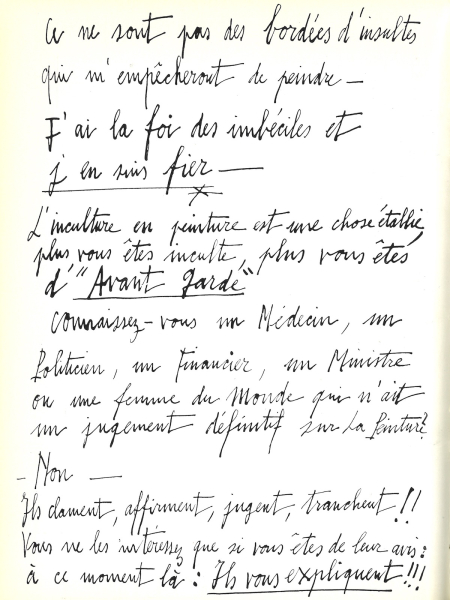 Ce ne sont pas des bordées d'insultes
qui m'empêcheront de peindre —
J'ai la foi des imbéciles et
j'en suis fier —
L'inculture en peinture est une chose établie,
plus vous êtes inculte, plus vous êtes
d'"Avant garde"
Connaissez-vous un Médecin, un
Politicien, un Financier, un Ministre
ou une femme du Monde qui n'ait
un jugement définitif sur la Peinture?
- Non —
Ils clament, affirment, jugent, tranchent!!
Vous ne les intéressez que si vous êtes de leur avis:
à ce moment là: Ils vous expliquent!!!